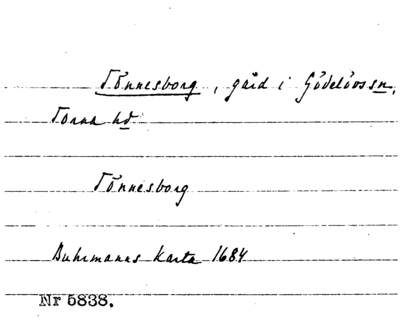 Tönnesborg, gård i Gödelövs sn,
Torna hd
Tönnesborg
Buhrmanns karta 1684
Nr 5838.